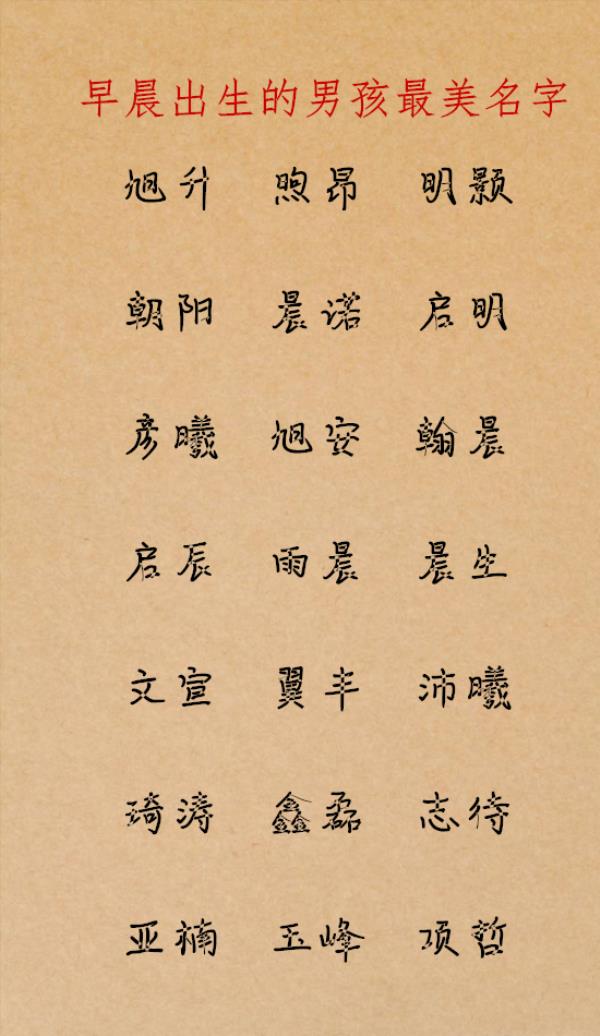 早晨出生的男孩最美名字
旭升 煦昂 明颢
朝阳 晨诺 启明
彦曦 旭安 翰晨
启辰 雨晨 晨生
文宣 翼丰 沛曦
琦涛 鑫磊 志待
亚楠 玉峰 项哲